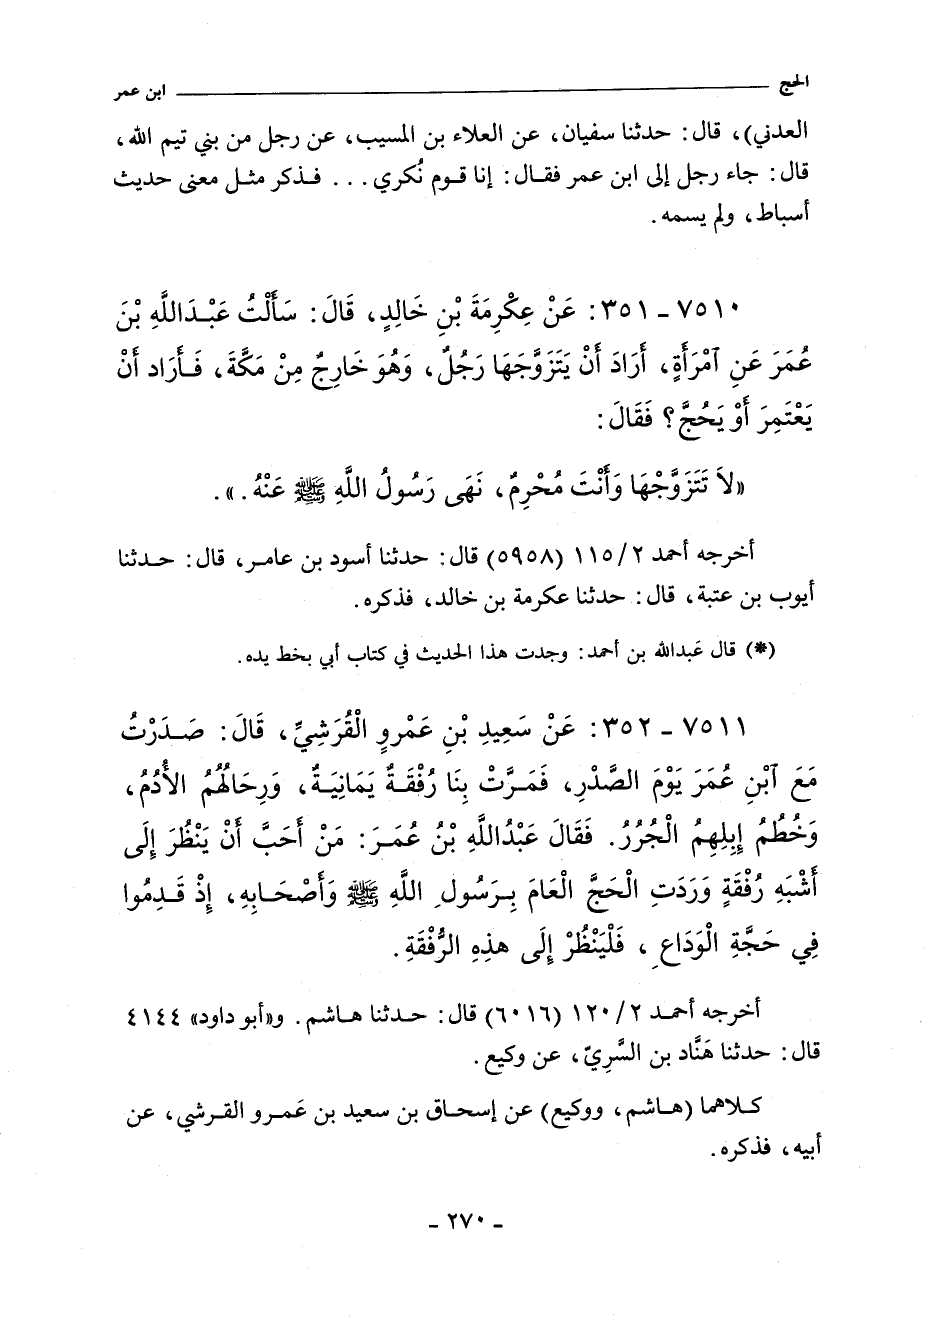 الحج ابن عمر
العدني)، قال: حدثنا سفيان، عن العلاء بن المسيب، عن رجل من بني تيم الله،
قال: جاء رجل إلى ابن عمر فقال: إنا قوم نُكري... فذكر مثل معنى حديث
أسباط، ولم يسمه.
٧٥١٠ - ٣٥١: عَنْ عِكْرِمَةَ بْنِ خَالِدٍ، قَالَ: سَأَلْتُ عَبْدَاللَّهِ بْنَ
عُمَرَ عَنِ آمْرَأَةٍ، أَرَادَ أَنْ يَتَزَوَّجَهَا رَجُلٌ، وَهُوَ خَارِجٌ مِنْ مَكَّةَ، فَأَرَاد أَنْ
يَعْتَمِرَ أَوْ يَحُجَّ؟ فَقَالَ:
«لاَ تَتَزَوَّجْهَا وَأَنْتَ مُحْرِمٌ، نَهَى رَسُولُ اللَّهِ ﷺ عَنْهُ.».
أخرجه أحمد ٢/١١٥ (٥٩٥٨) قال: حدثنا أسود بن عامر، قال: حدثنا
أيوب بن عتبة، قال: حدثنا عكرمة بن خالد، فذكره.
(*) قال عَبدالله بن أحمد: وجدت هذا الحديث في كتاب أبي بخط يده.
٧٥١١ - ٣٥٢: عَنْ سَعِيدِ بْنِ عَمْرٍو الْقُرَشِيِّ، قَالَ: صَدَرْتُ
مَعَ آبْنِ عُمَرَ يَوْمَ الصَّدْرِ، فَمَرَّتْ بِنَا رُفْقَةٌ يَمَانِيَةٌ، وَرِحَالُهُمُ الأُدُمُ،
وَخُطُمُ إِبِلِهِمُ الْجُرُرُ. فَقَالَ عَبْدُاللَّهِ بْنُ عُمَرَ: مَنْ أَحَبَّ أَنْ يَنْظُرَ إِلَى
أَشْبَهِ رُفْقَةٍ وَرَدَتِ الْحَجَّ الْعَامَ بِرَسُولِ اللَّهِ ﷺ وَأَصْحَابِهِ، إِذْ قَدِمُوا
فِي حَجَّةِ الْوَدَاعِ، فَلْيَنْظُرْ إِلَى هذِهِ الرُّفْقَةِ.
أخرجه أحمد ٢/١٢٠ (٦٠١٦) قال: حدثنا هاشم. و«أبو داود» ٤١٤٤
قال: حدثنا هَنَّاد بن السَّرِيّ، عن وكيع.
كلاهما (هاشم، ووكيع) عن إسحاق بن سعيد بن عَمرو القرشي، عن
أبيه، فذكره.
- ٢٧٠ -